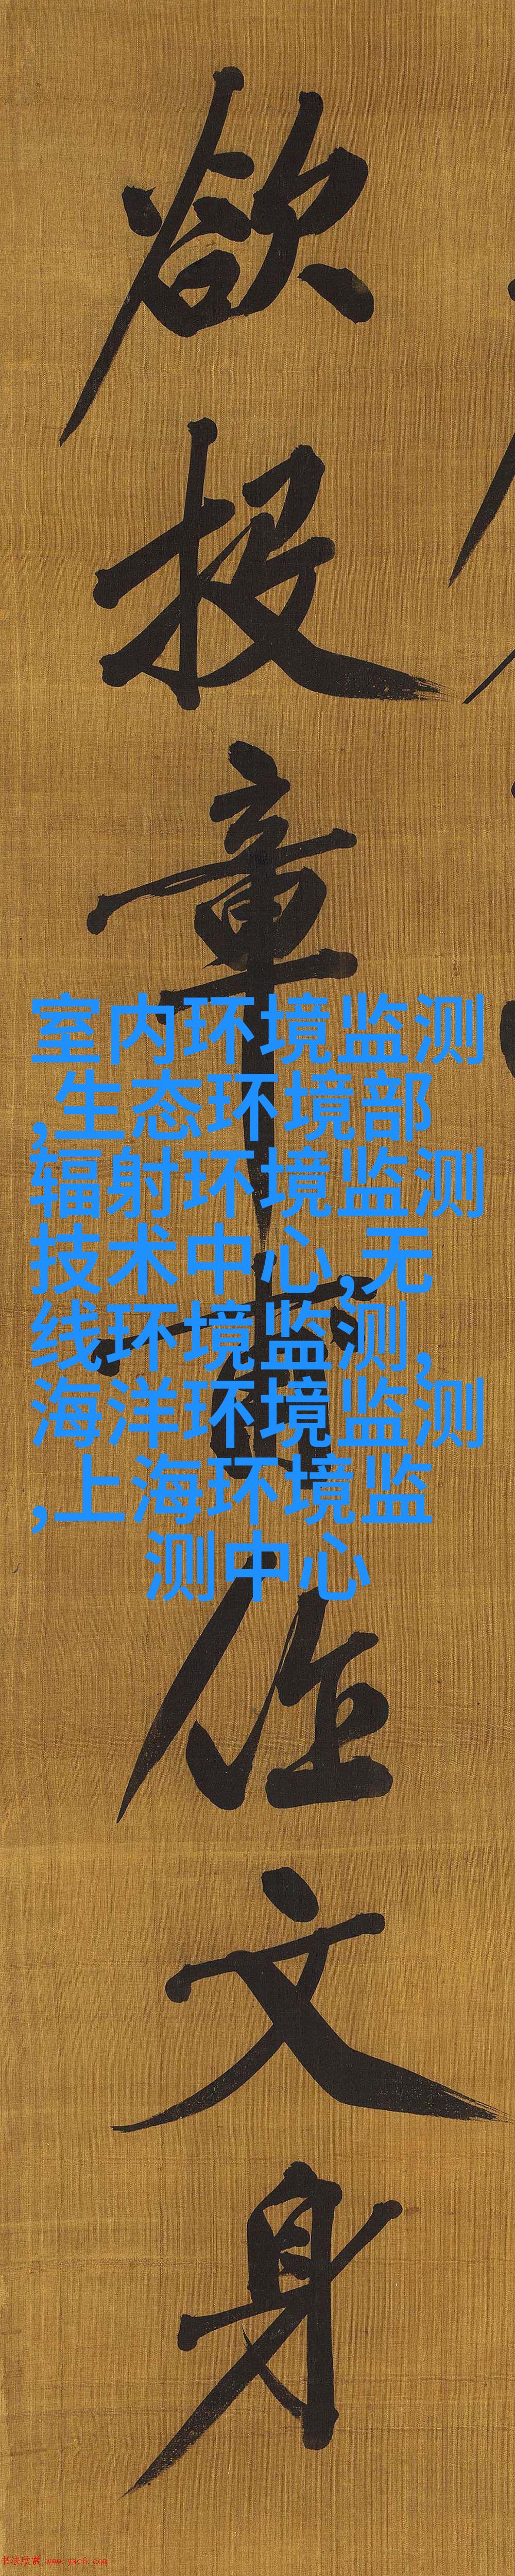 欲投章甫作文身
室内环境监测
,生态环境部
辐射环境监测
技术中心,无
线环境监测,
海洋环境监测
,上海环境监
测中心
书法欣赏 www.yac8.com